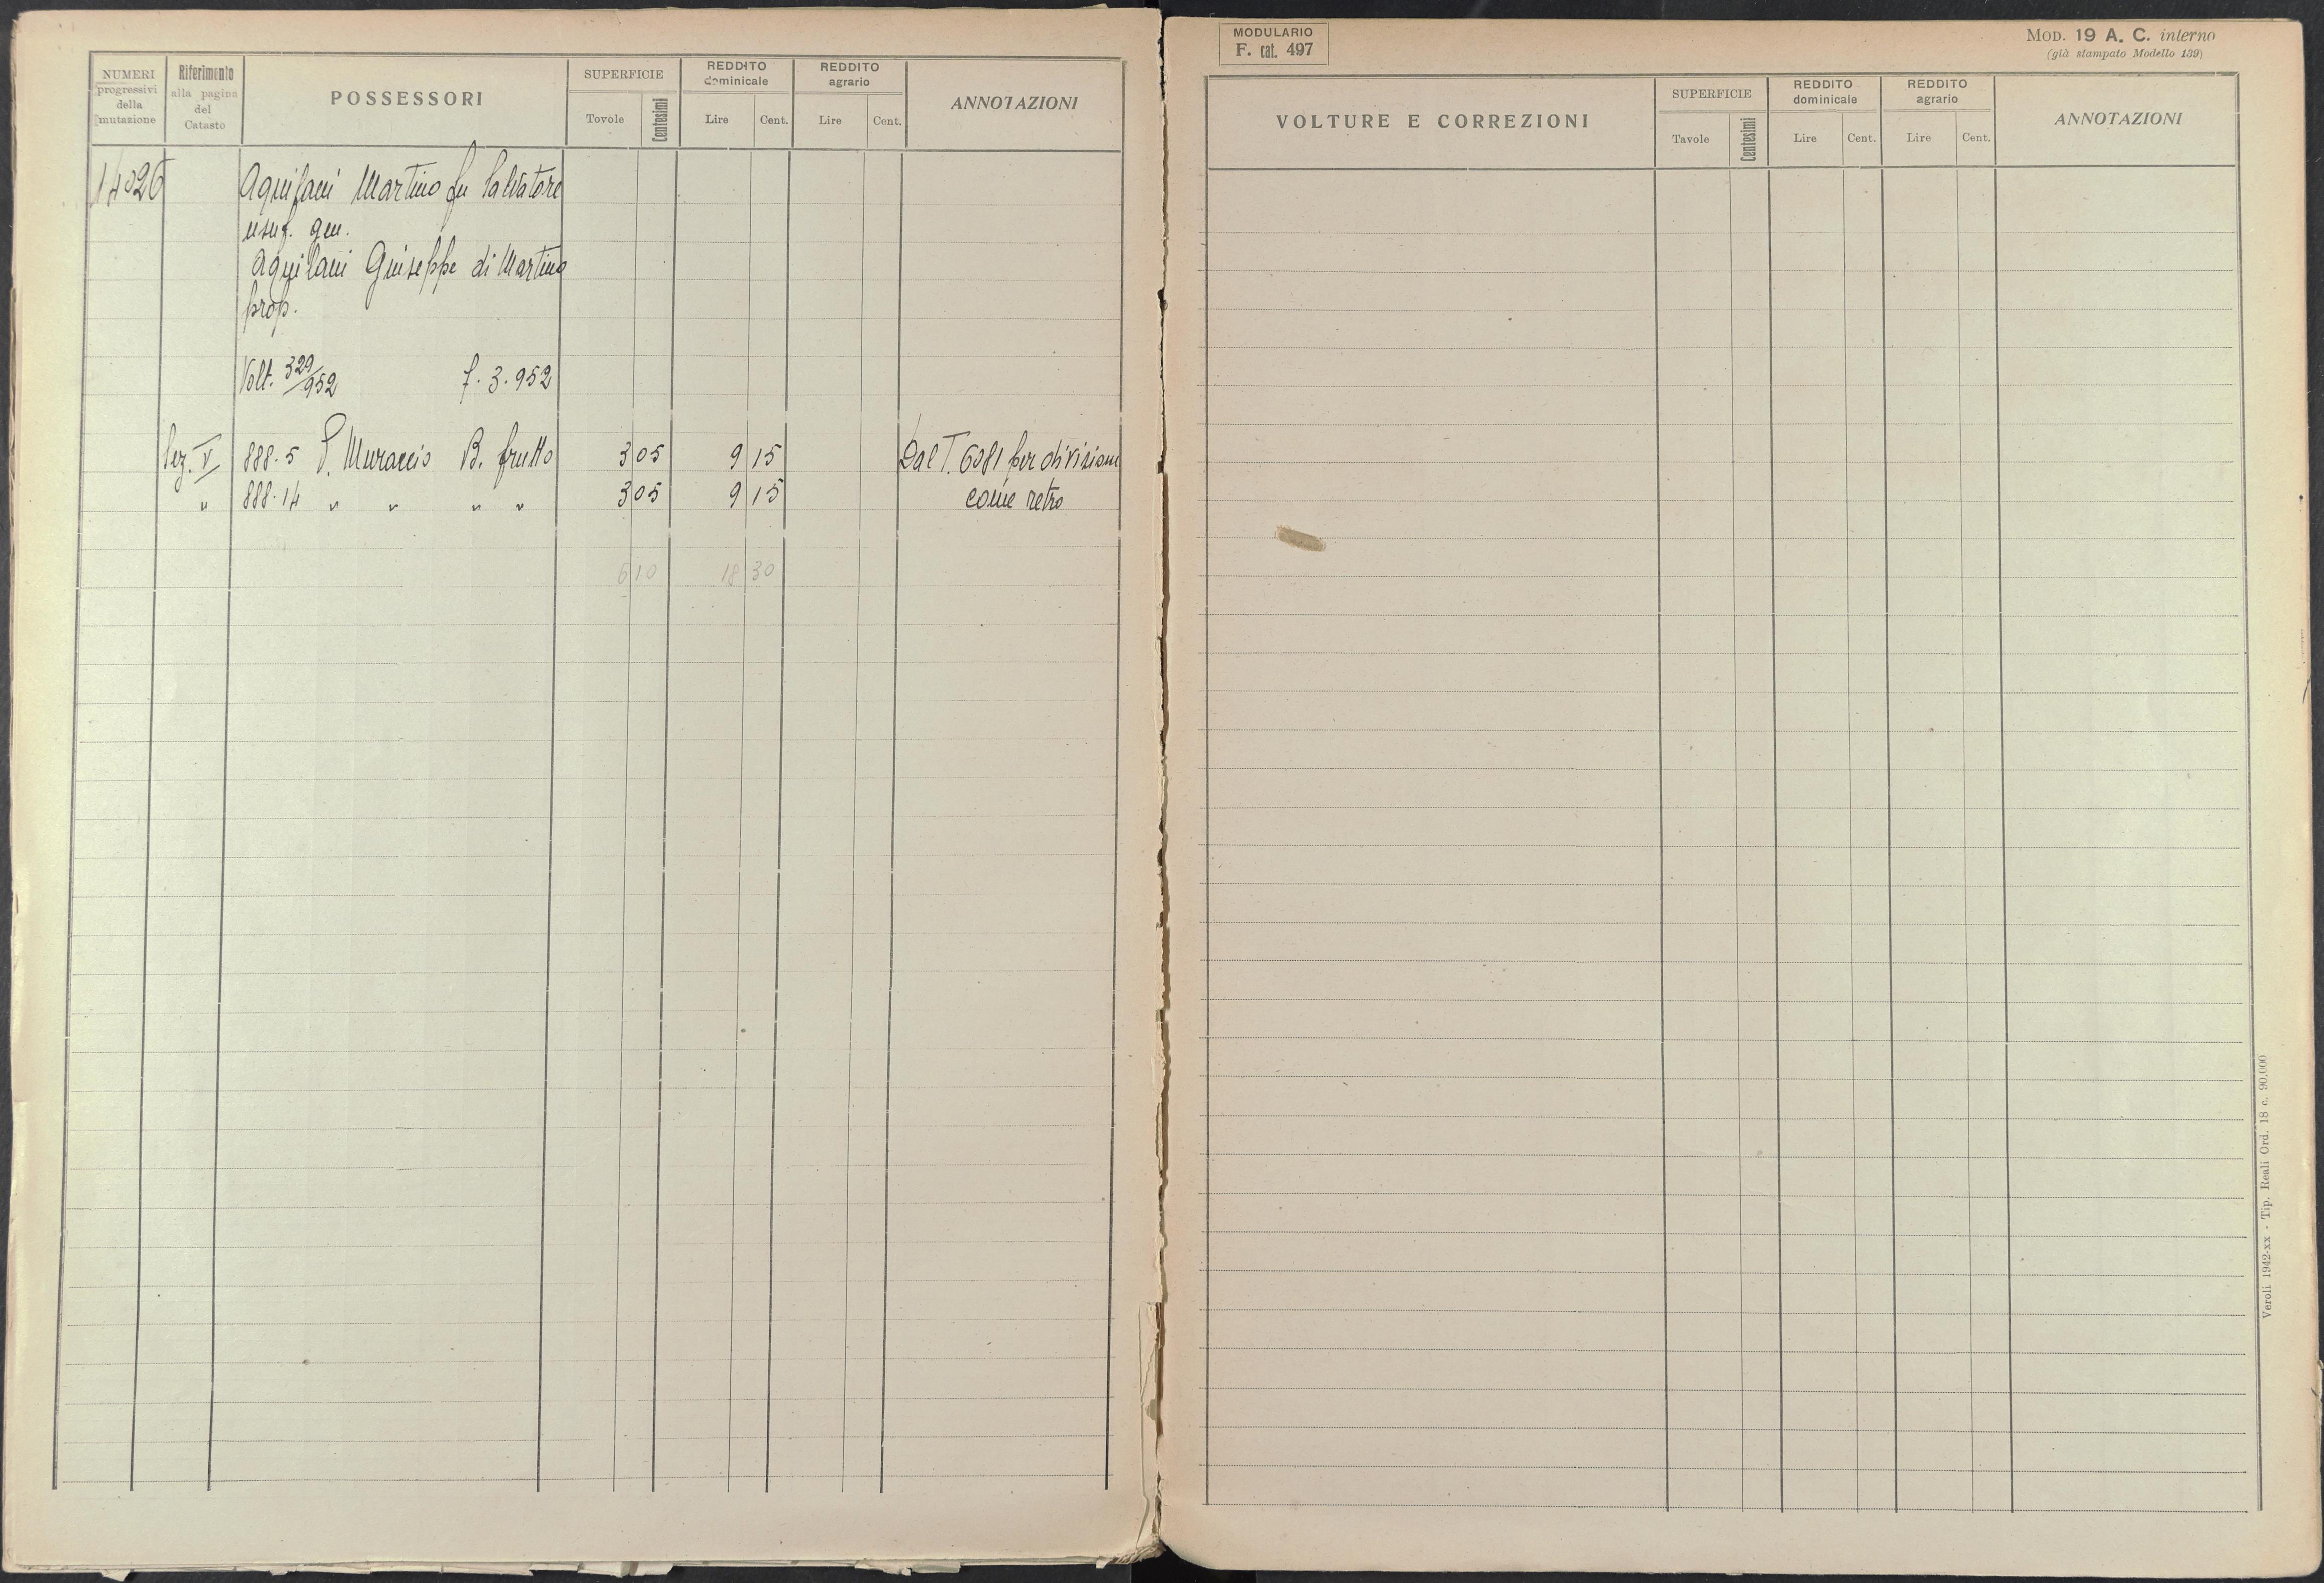 NUMERI progressivi della mutazione
Riferimento alla pagina del Catasto
POSSESSORI
SUPERFICIE
Tovole Centesimi
REDDITO dominicale
Lire Cent.
REDDITO agrario
Lire Cent.
ANNOTAZIONI
14026 Aquilani Martino fu Salvatore
usuf. gen.
Aquilani Giuseppe di Martino
prop.
Volt. 329/952 7.3.952
Sez. V 888.5 P. Muraccio B. frutto 3 05 9 15 Dal T. 6081 per divisione
" 888.14 " " " " 3 05 9 15 come retro
6 10 18 30
MODULARIO
F. cat. 497
MOD. 19 A. C. interno
(già stampato Modello 139)
VOLTURE E CORREZIONI
SUPERFICIE
Tavole Centesimi
REDDITO dominicale
Lire Cent.
REDDITO agrario
Lire Cent.
ANNOTAZIONI
Veroli 1942-xx - Tip. Reali Ord. 18 c. 90.000